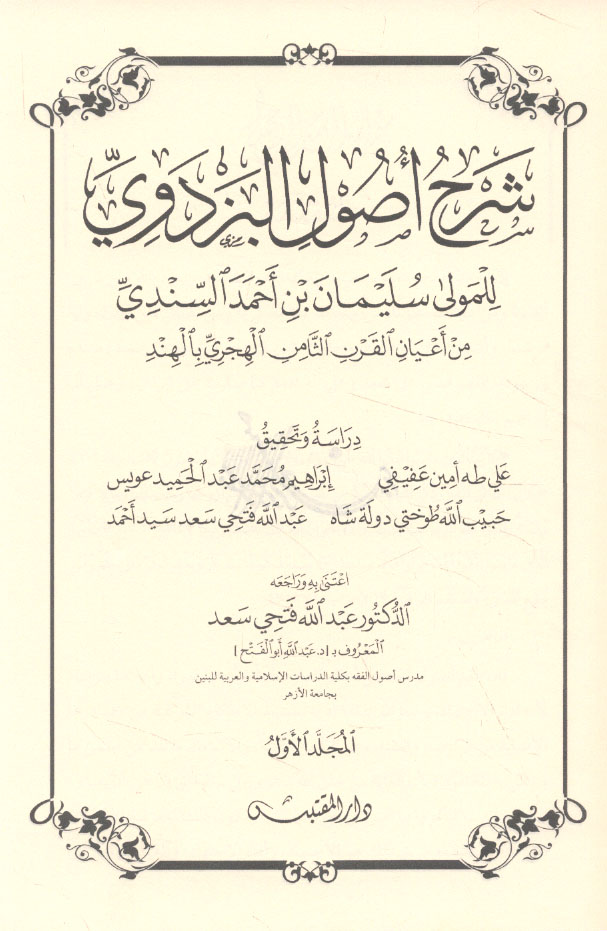 شَرْحُ أُصُوْلِ البَزْدَوِيِّ
لِلْمَوْلىٰ سُلَيْمَانَ بْنِ أَحْمَدَ السِّنْدِيِّ
مِنْ أَعْيَانِ القَرْنِ الثَّامِنِ الْهِجْرِيِّ بِالْهِنْدِ
دِرَاسَةُ وَتَحْقِيْقُ
عَلي طه أمِين عَفِيْفِي إِبْرَاهِيم مُحَمَّد عَبْد الْحَمِيد عويس
حَبِيْب اللّٰه طُوخْتي دولَة شَاه عَبْد اللّٰه فَتْحِي سَعد سَيد أَحْمَد
اعْتَنَىٰ بِهِ وَرَاجَعَه
الدُّكْتُور عَبْد اللّٰه فَتْحِي سَعد
الْمَعْرُوف بـ [د. عَبْد اللّٰه أَبو الْفَتْح]
مدرس أصول الفقه بكلية الدراسات الإسلامية والعربية للبنين
بجامعة الأزهر
الْمُجَلَّد الأَوَّلُ
دار المقتبس